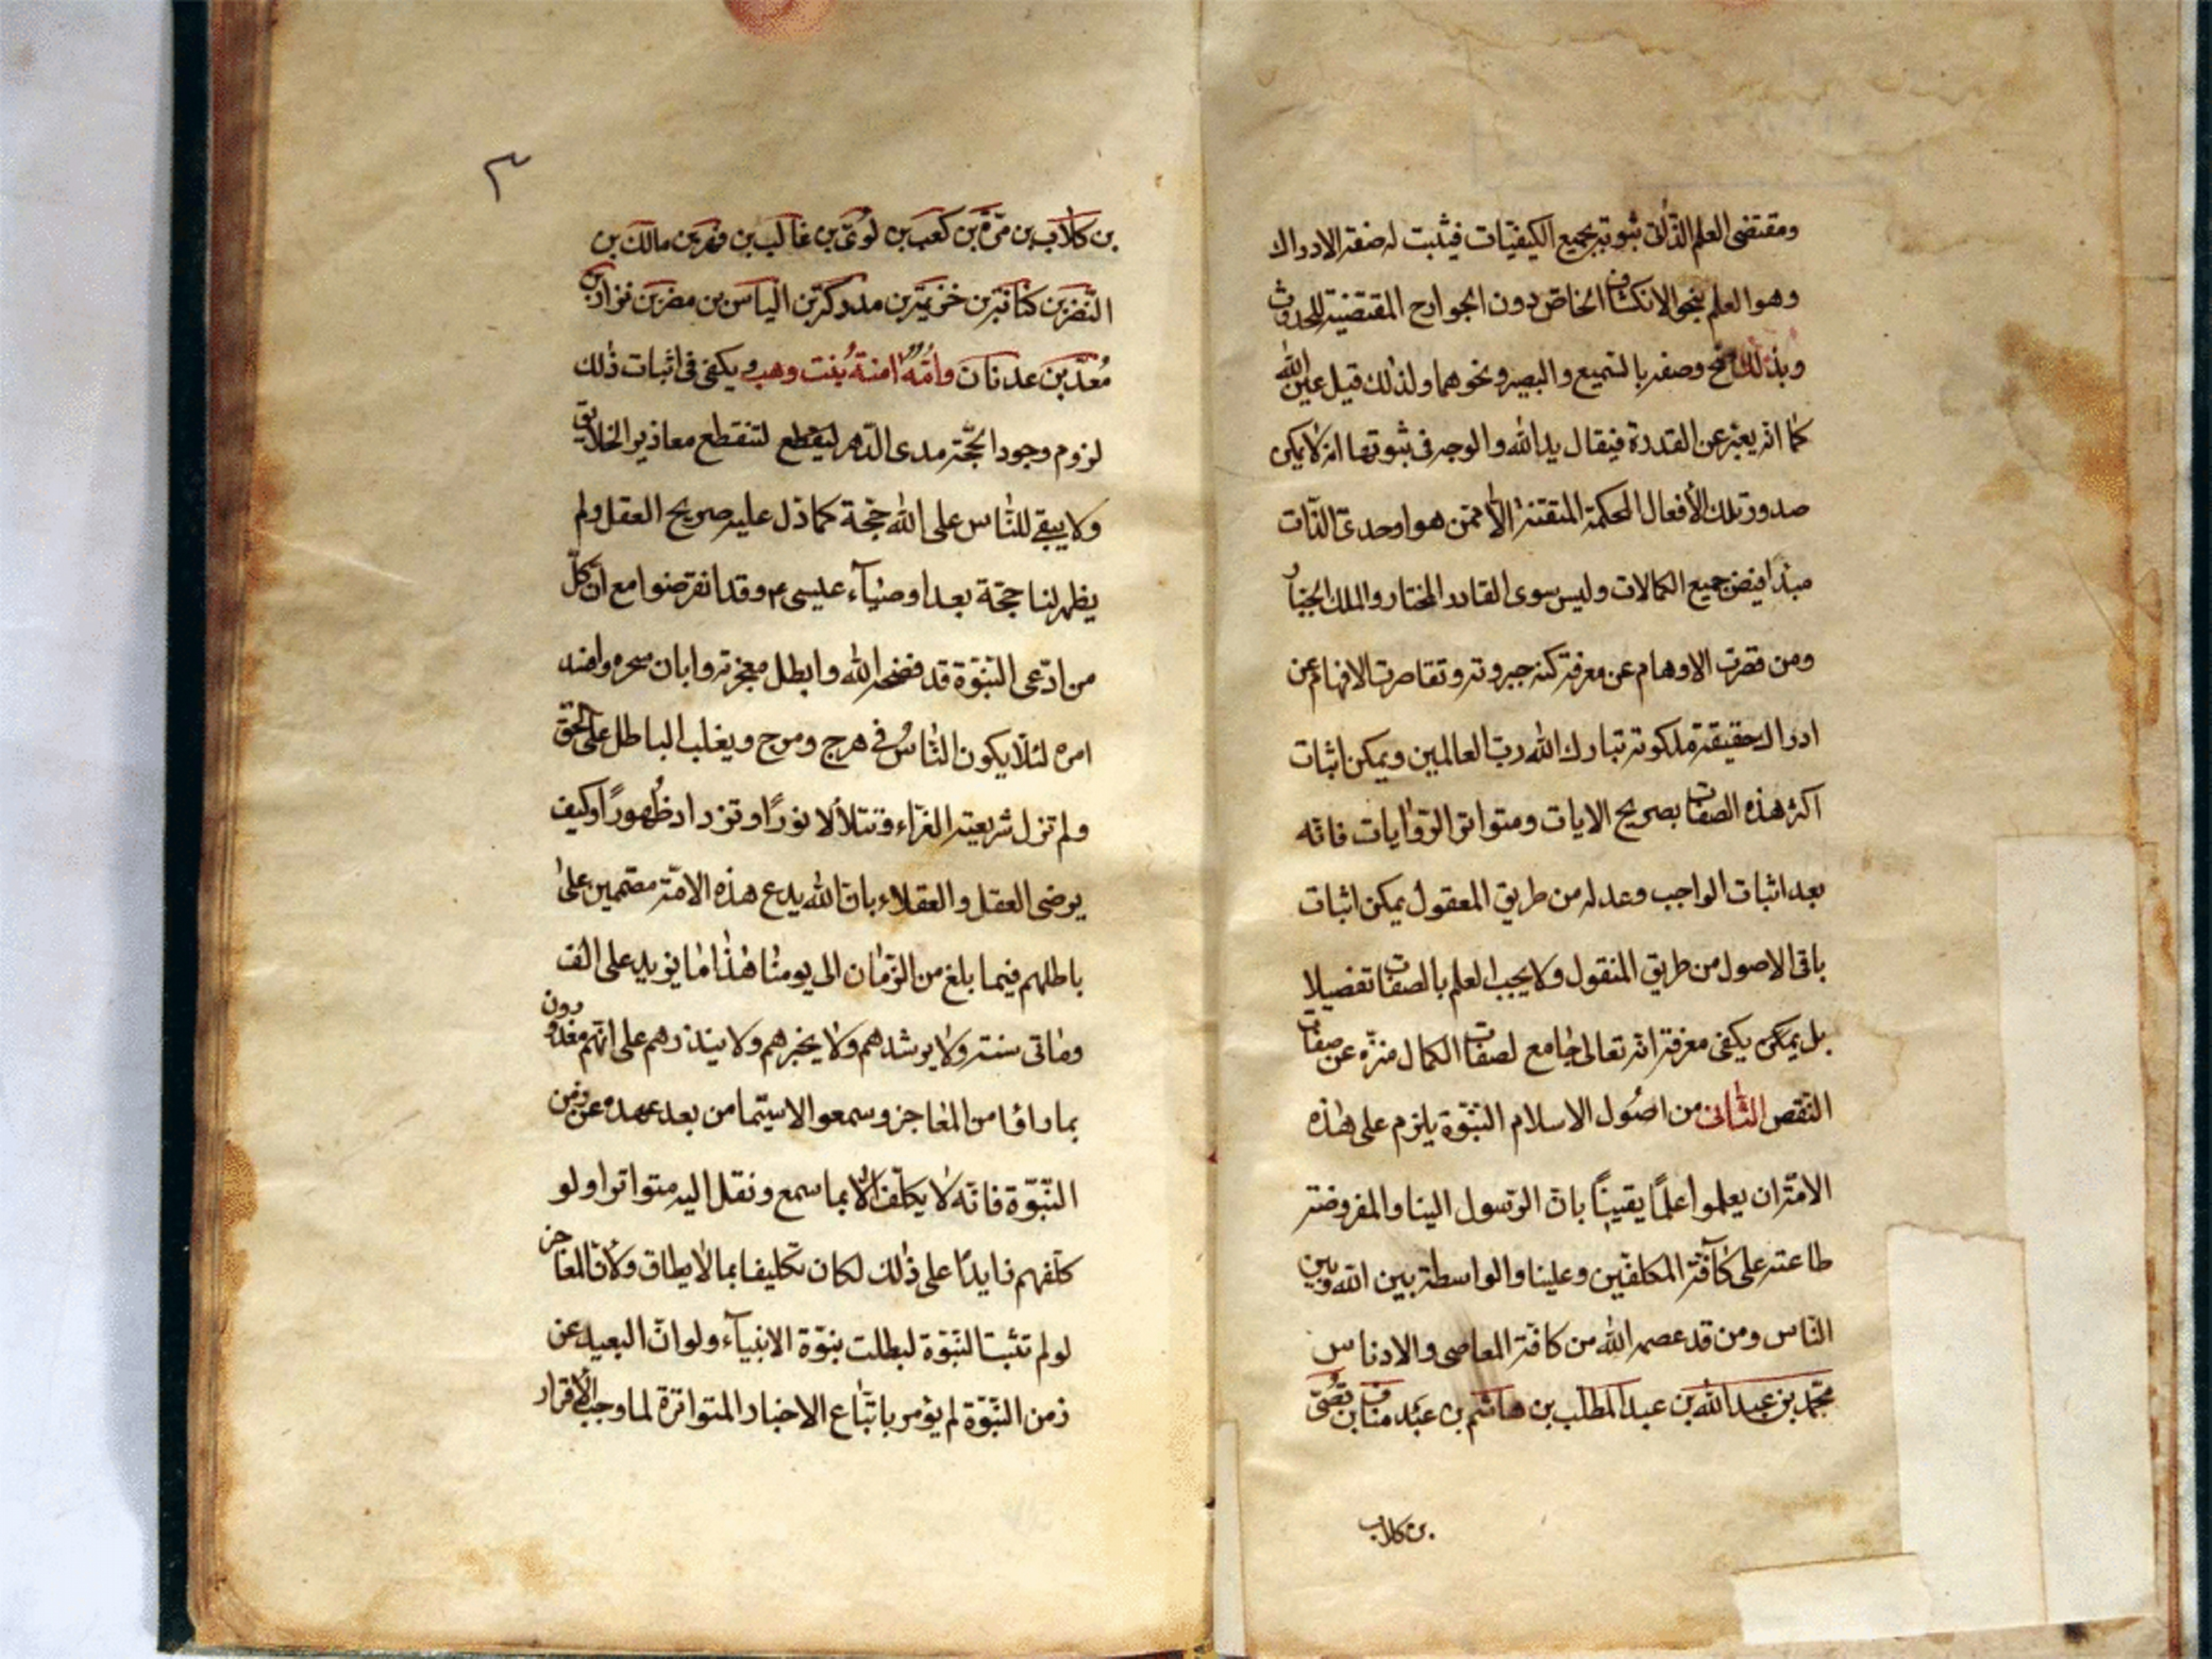 ومقتضى العلم الذاتى ثبوته بجميع الكيفيّات فيثبت له صفة الادراك
وهو العلم بنحو الانكشاف الخاص دون الجوارح المقتضية للحدوث
وبذلك صح وصفه بالسّميع والبصير ونحوهما ولذلك قيل عين الله
كما انه يعبّر عن القدرة فيقال يد الله والوجه فى ثبوتها انه لا يمكن
صدور تلك الأفعال المحكمة المتقنة الّا ممّن هو اوحدىّ الذّات
مبدأ فيض جميع الكمالات وليس سوى القادر المختار والملك الجبّار
ومن قصرت الاوهام عن معرفة كنه جبروته وتقاصرت الافهام عن
ادراك حقيقة ملكوته تبارك الله ربّ العالمين ويمكن اثبات
اكثر هذه الصفات بصريح الايات ومتواتر الرّوايات فانّه
بعد اثبات الواجب وعدله من طريق المعقول يمكن اثبات
باقى الاصول من طريق المنقول ولا يجب العلم بالصفات تفصيلا
بل يمكن يكفى معرفة انه تعالى جامع لصفات الكمال منزّه عن صفات
النّقص الثّانى من اصُول الاسلام النبّوّة يلزم على هٰذه
الامّة ان يعلموا علمًا يقينًا بانّ الرّسول الينا والمفروضة
طاعته على كآفّة المكلفين وعلينا والواسطة بين الله وبين
النّاس ومن قد عصمه الله من كافّة المعاصى والادناس
محمّد بن عبد الله بن عبد المطّلب بن هاشم بن عبد مناف بن قصىّ
بن كلاب
٣
بن كلاب بن مرّة بن كعب بن لوىّ بن غالب بن فهر بن مالك بن
النّضر بن كنانة بن خزيمة بن مدركة بن الياس بن مضر بن نزار بن
مُعدّ بن عدنان وامّه امنة بُنت وهب ويكفى فى اثبات ذٰلك
لزوم وجود الحجّة مدى الدّهر ليقطع لتنقطع معاذير الخلايق
ولا يبقى للنّاس على الله حجّة كما دلّ عليه صريح العقل ولم
يظهر لنا حجّة بعد اوصيآء عليسى ع وقد انقرضوا مع ان كلّ
من ادّعى النّبوّة قد فضحه الله وابطل معجزته وابان سحره وافسد
امره لئلّا يكون النّاسُ فى هرج ومرج ويغلب الباطل على الحقّ
ولم تزل شريعته الغرّاء تتلألأ نورًا وتزداد ظُهورًا وكيف
يرضى العقل والعقلاء بانّ الله يدع هذه الامّة مقيمين علىٰ
باطلهم فيما بلغ من الزّمان الى يومنا هٰذا ما يزيد على الف
ومٰاتى سنة ولا يرشدهم ولا يخبرهم ولا ينذرهم على انّهم معذورون
بما راوا من المعاجز وسمعوا لا سيّما من بعد عهده عن زمن
النّبّوّة فانّه لا يكلّف الّا بما سمع ونقل اليه متواترا ولو
كلّفهم زايدًا على ذٰلك لكان تكليفا بما لا يطاق ولأنّ المعاجز
لو لم تثبت النّبوّة لبطلت نبوّة الانبيآء ولو انّ البعيد عن
زمن النّبّوّة لم يؤمر باتّباع الاخبار المتواترة لما وجب الاقرار